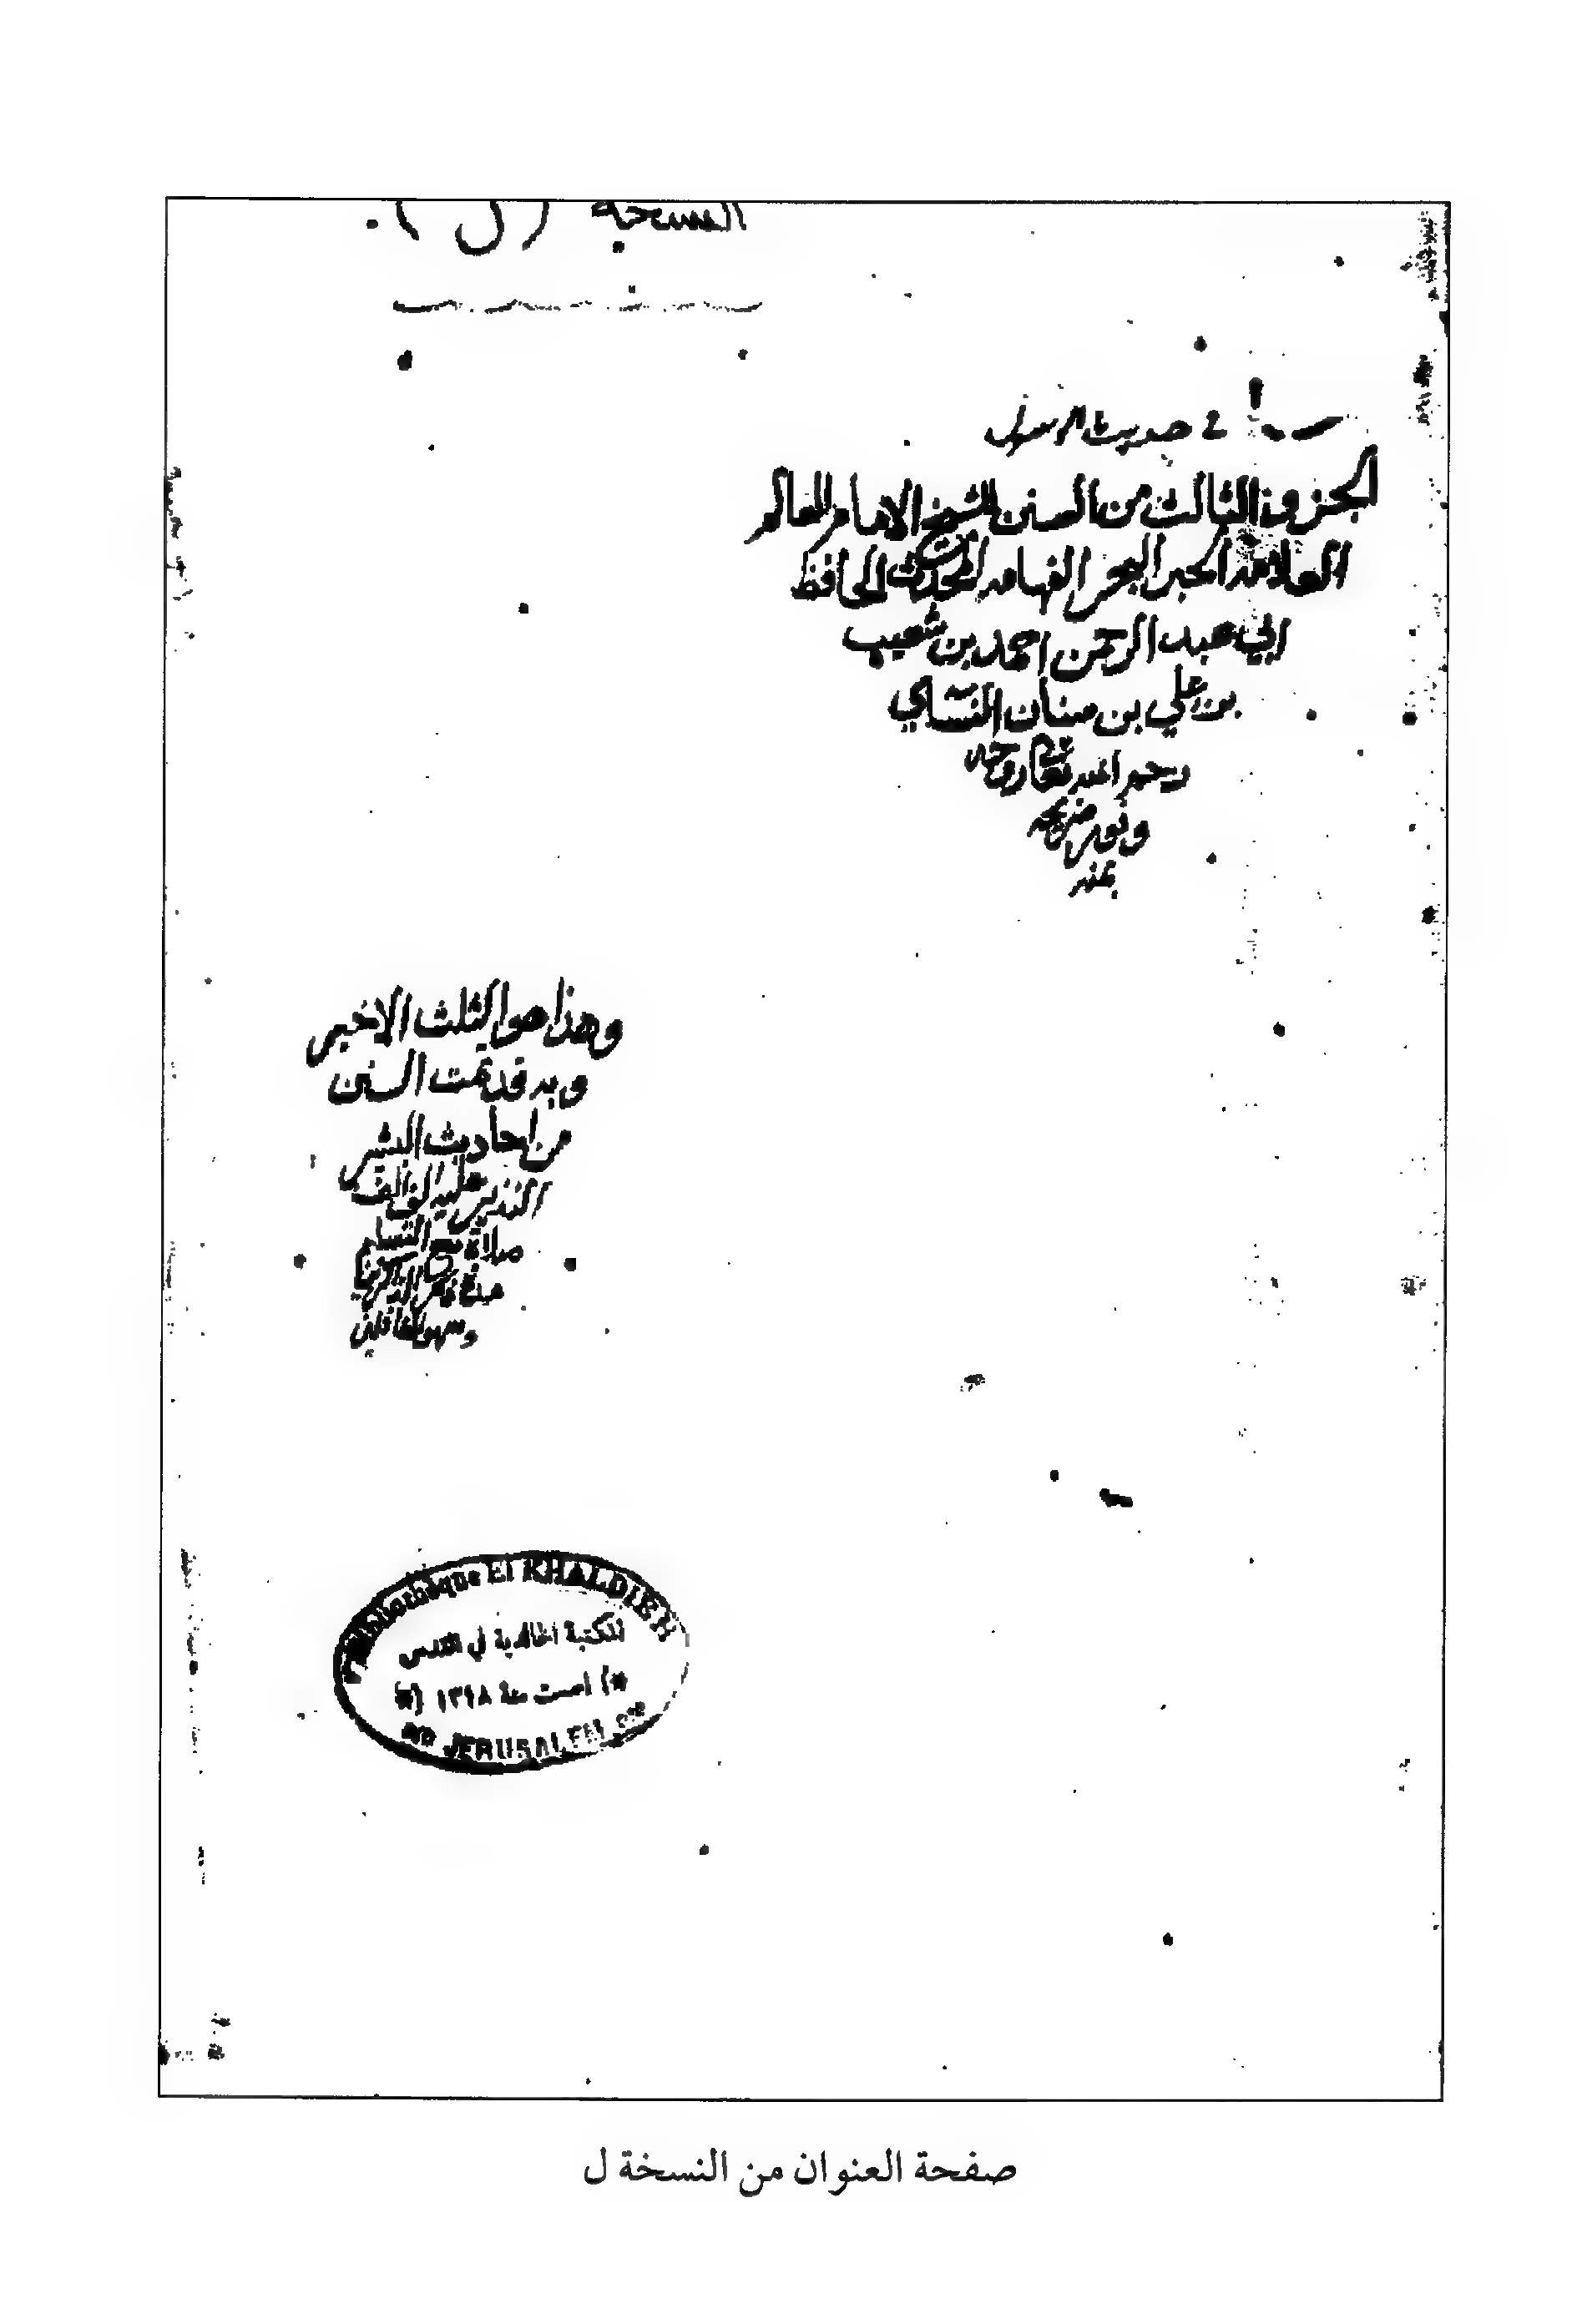 النسخة (ل).
في حديث الرسول
الجزو الثالث من السنن للشيخ الامام العالم
العلامه الحبر البحر الفهامه المحدث الحافظ
ابي عبد الرحمن احمد بن شعيب
بن علي بن سنان النسائي
رحمه الله تعالى روحه
ونور ضريحه
بمنه
وهذا هو الثلث الاخير
وبه قد تمت السنن
من احاديث البشير
النذير عليه الف الف
صلاة مع التسليم
وسهو الغافلين
Bibliothèque El KHALDIEH
المكتبة الخالدية في القدس
اسست سنة ١٣١٨
JERUSALEM
صفحة العنوان من النسخة ل